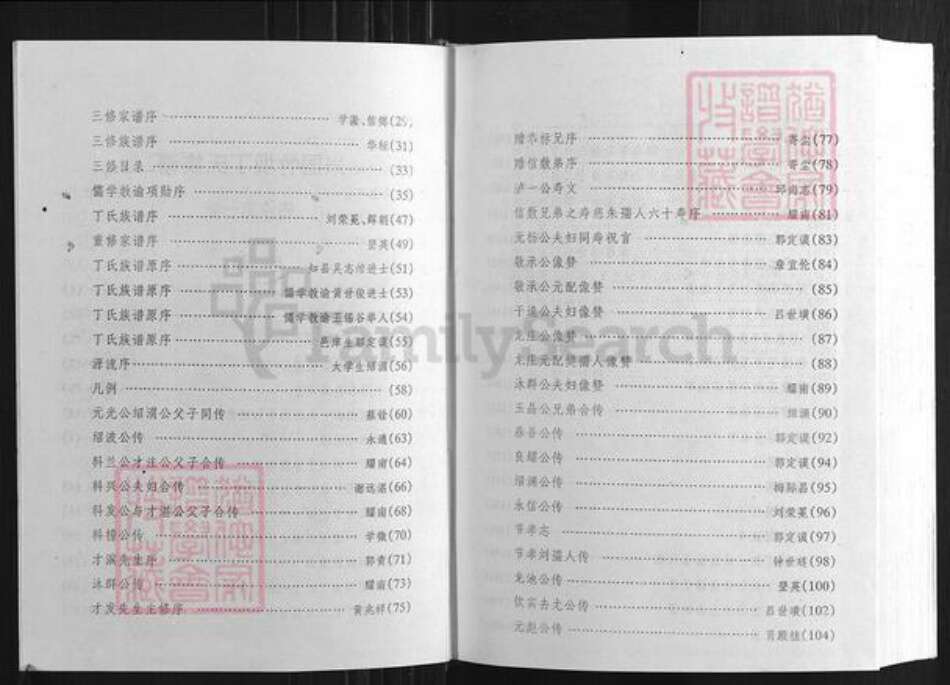 三修家谱序 (29)
三修族谱序 华标(31)
三修目录 (33)
儒学教谕项勋序 (35)
丁氏族谱序 刘荣冕,辉朝(47)
重修家谱序 登英(49)
丁氏族谱原序 知县吴志绾进士(51)
丁氏族谱原序 儒学教谕黄世俊进士(53)
丁氏族谱原序 儒学教谕王锡谷举人(54)
丁氏族谱原序 邑庠生郭定谟(55)
源流序 太学生绍濂(56)
凡例 (58)
元光公绍渭公父子同传 (60)
绍波公传 永通(63)
科兰公才注公父子合传 耀南(64)
科兴公夫妇合传 谢远湛(66)
科发公与才湛公父子合传 耀南(68)
科檀公传 学微(70)
才演先生序 郭青(71)
泳群公传 耀南(73)
才发先生主修序 黄兆祥(75)
赠华标兄序 寄尘(77)
赠信敷弟序 寄尘(78)
泸一公寿文 邱尚志(79)
信敷兄弟之寿慈朱孺人六十寿序 耀南(81)
元枱公夫妇同寿祝言 郭定谟(83)
敬承公像赞 章宜伦(84)
敬承公元配像赞 (85)
于逵公夫妇像赞 吕世璜(86)
九庄公像赞 (87)
九庄元配樊孺人像赞 (88)
泳群公夫妇像赞 耀南(89)
玉晶公兄弟合传 (90)
公传 郭定谟(92)
良耀公传 郭定谟(94)
绍渊公传 梅际昌(95)
永信公传 刘荣冕(96)
节孝志 郭定谟(97)
节孝刘孺人传 钟世廷(98)
龙池公传 登英(100)
饮宾去尤公传 吕世璜(102)
元彪公传 (104)
FamilySearch